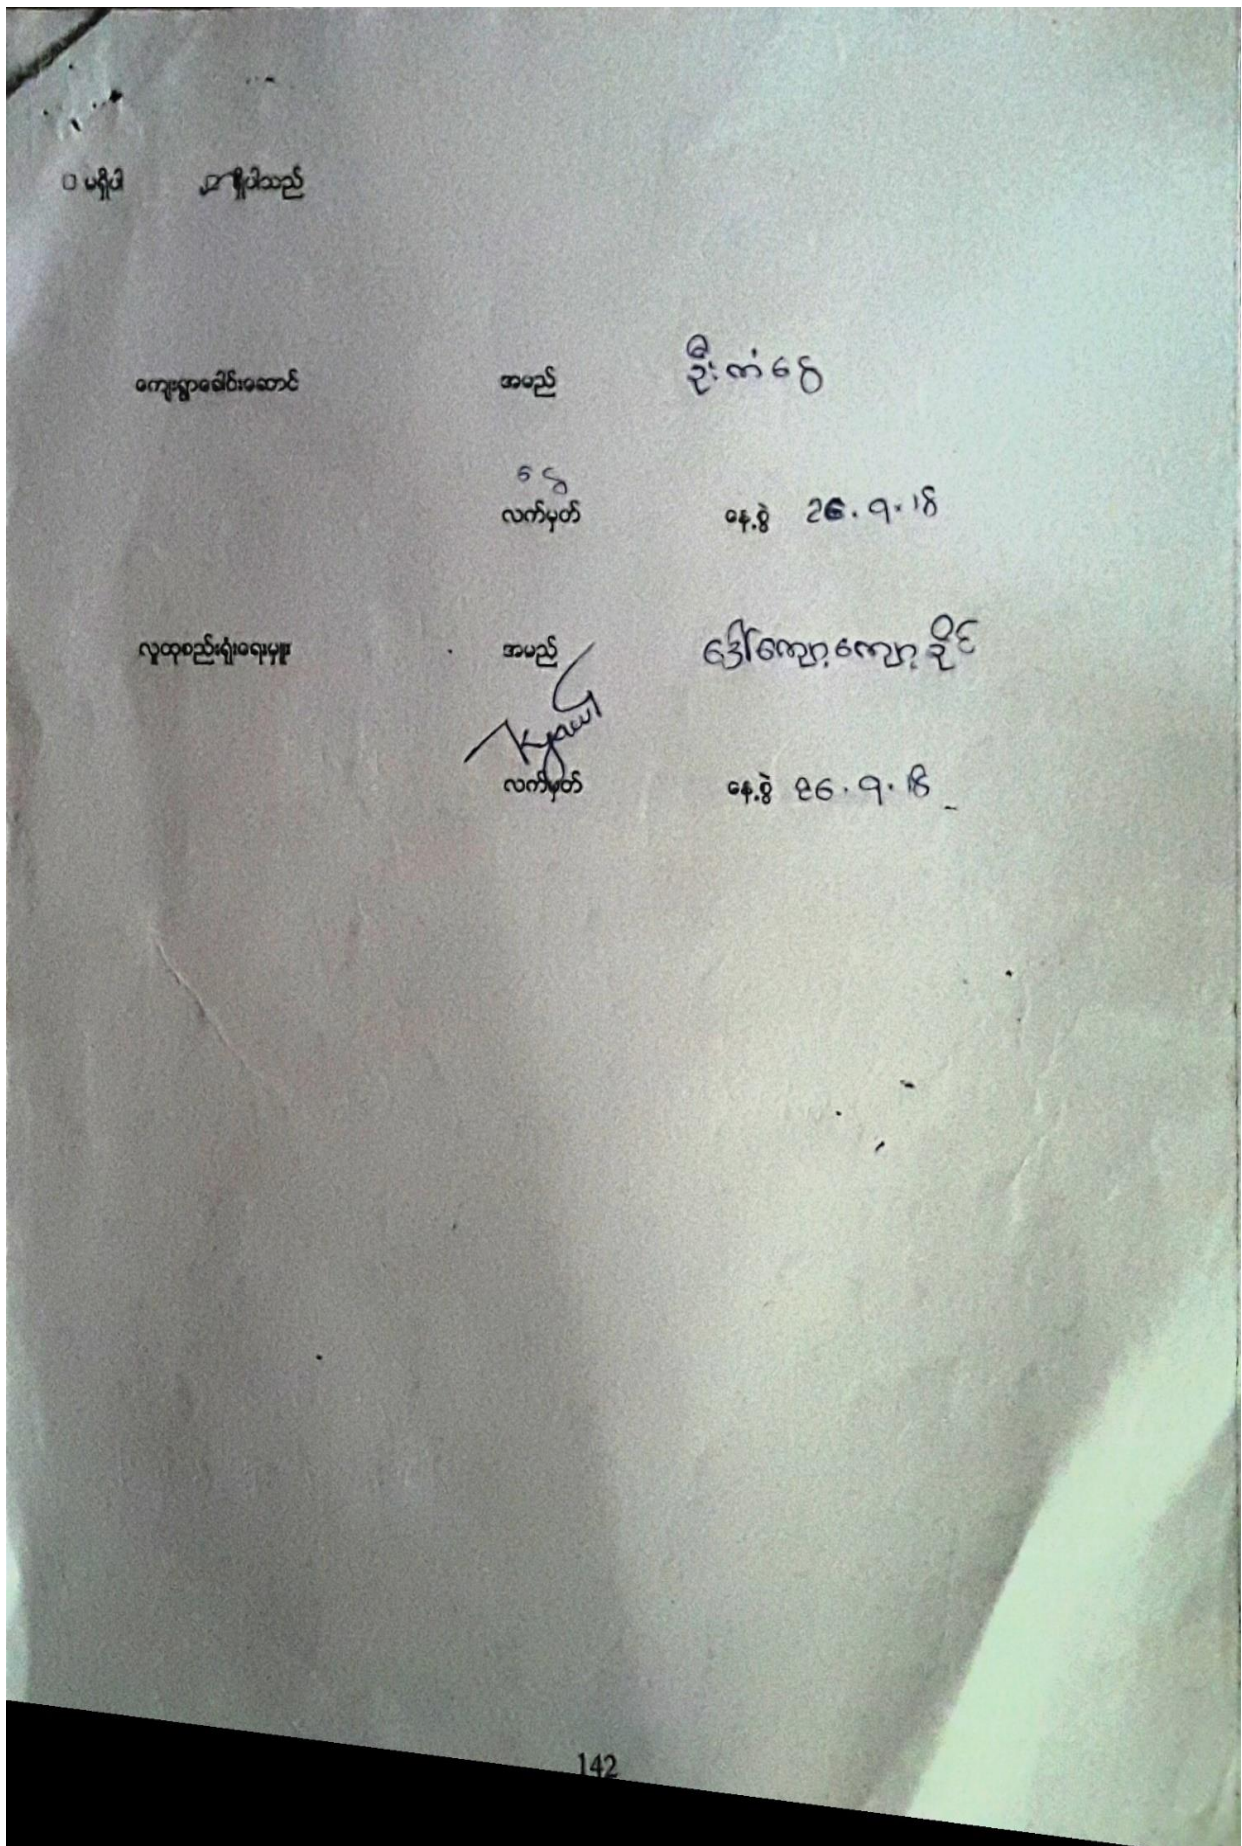 □ မရှိပါ □ ရှိပါသည်
ကျေးရွာခေါင်းဆောင် အမည် ဦးကံငွေ
ငွေ
လက်မှတ် နေ့စွဲ 26.9.18
လူထုစည်းရုံးရေးမှူး အမည် ဒေါ်ကျော့ကျော့ခိုင်
Kyawt
လက်မှတ် နေ့စွဲ 26.9.18
142